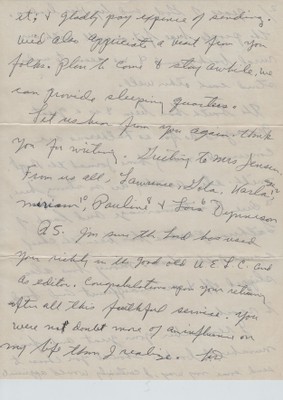 it, & gladly pay expense of sending.
We'd also appreciate a visit from you
folks. Plan to come & stay awhile, we
can provide sleeping quarters.
Let us hear from you again. Thank
You for writing. Greeting to Mrs Jensen.
From us all. Lawrence, Lola, Marla
Miriam, Pauline & Lois
P.S. I'm sure the Lord has used
You richly in the good old U E L C and
as editor. Congratulations upon your retiring
after all this faithful service. You
were no doubt more of an influence on
my life than I realize.